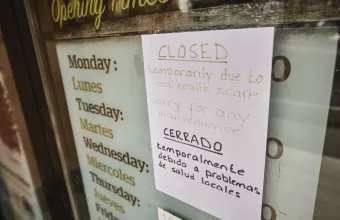 Opening Times
Monday:
Lunes
Tuesday:
Martes
Wednesday:
Miercoles
Thursday:
Jueves
Friday
CLOSED
temporarily due to
local health scare
Sorry for any
inconvenience
CERRADO
temporalmente
debido a problemas
de salud locales